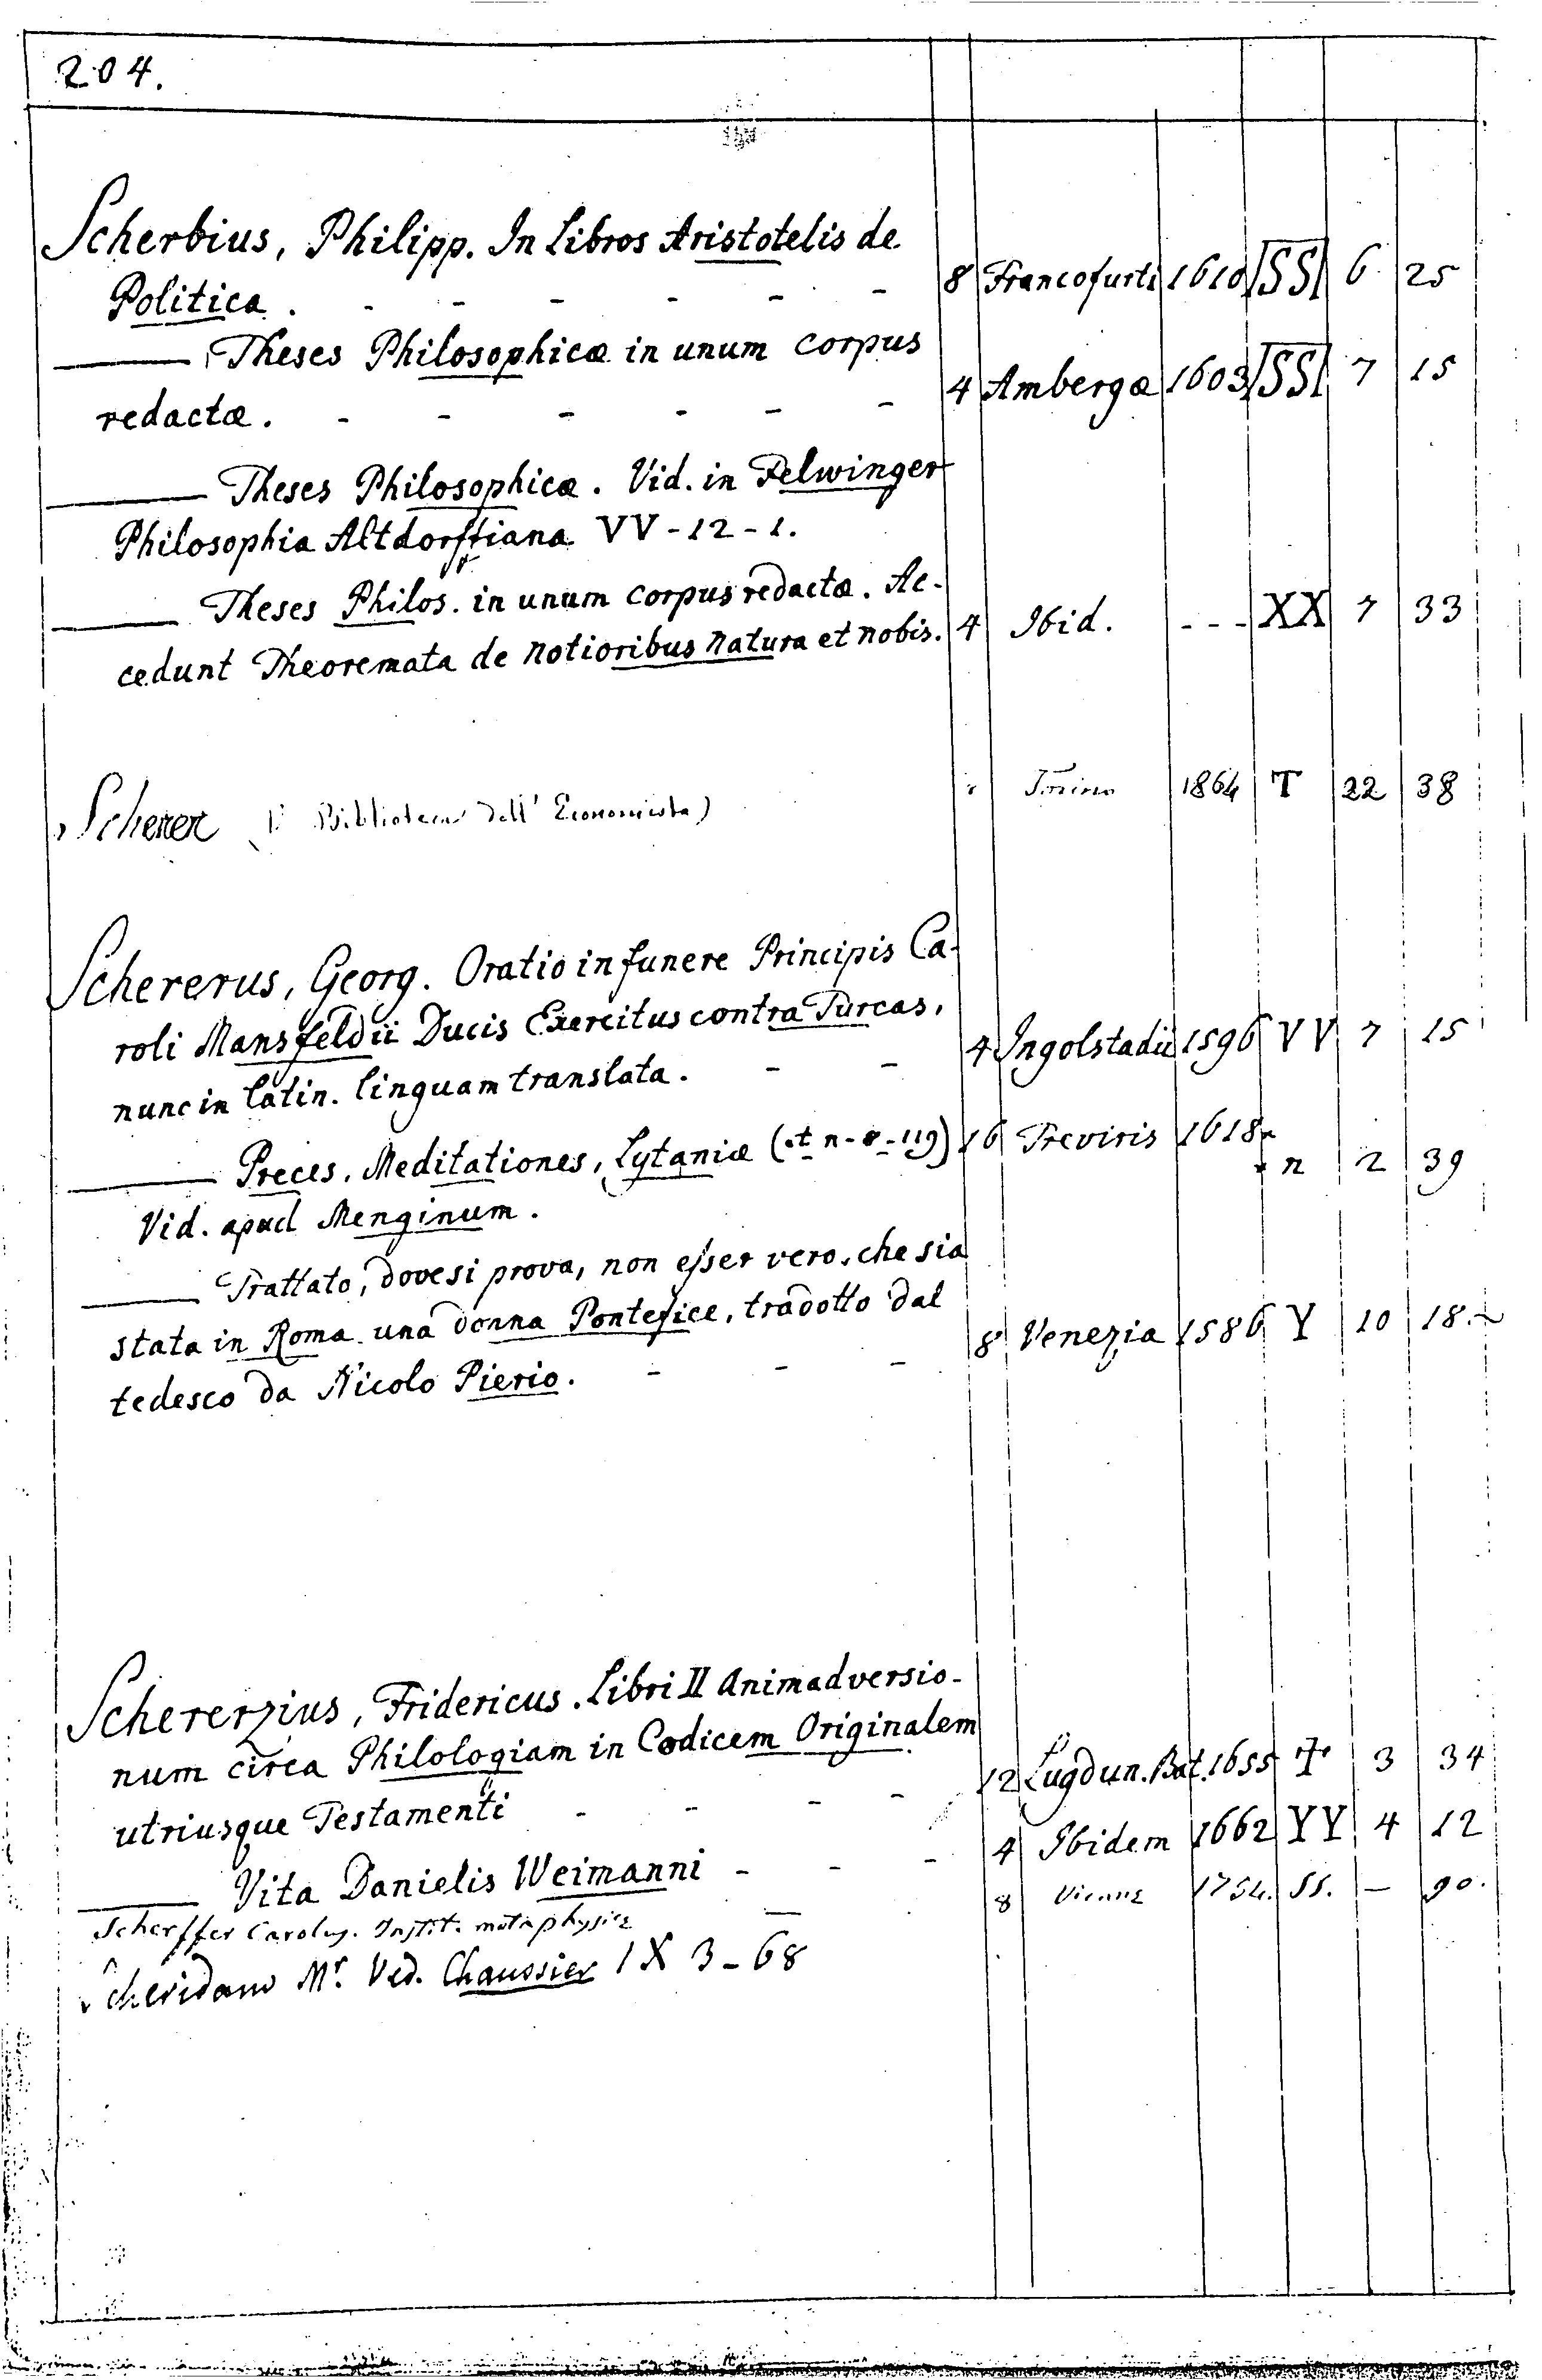 204.
Scherbius, Philipp. In Libros Aristotelis de
Politica. - - - - - - 8 Francofurti 1610 SS 6 25
——— Theses Philosophicæ in unum corpus
redactæ. - - - - - - 4 Ambergæ 1603 SS 7 15
——— Theses Philosophicæ. Vid. in Felwinger
Philosophia Altdorffiana VV-12-1.
——— Theses Philos. in unum corpus redactæ. Ac-
cedunt Theoremata de notioribus natura et nobis. 4 Ibid. --- XX 7 33
Scherer Biblioteca dell' Economista) Torino 1864 T 22 38
Schererus, Georg. Oratio in funere Principis Ca-
roli Mansfeldii Ducis Exercitus contra Turcas,
nunc in latin. linguam translata. - - 4 Ingolstadii 1596 VV 7 15
——— Preces, Meditationes, Lytaniæ (et n-8-119) 16 Treviris 1618 n 2 39
Vid. apud Menginum.
——— Trattato, dove si prova, non esser vero, che sia
stata in Roma una donna Pontefice, tradotto dal
tedesco da Nicolo Pierio. - - - 8 Venezia 1586 Y 10 18.
Schererzius, Fridericus. Libri II Animadversio-
num circa Philologiam in Codicem Originalem
utriusque Testamenti - - - - 12 Lugdun. Bat. 1655 T 3 34
——— Vita Danielis Weimanni - - - 4 Ibidem 1662 YY 4 12
Scherffer Carolus. Instit. metaphysicæ — 8 Viennæ 1754. SS. — 90.
Scheridano Mr. Ved. Chaussier IX 3-68